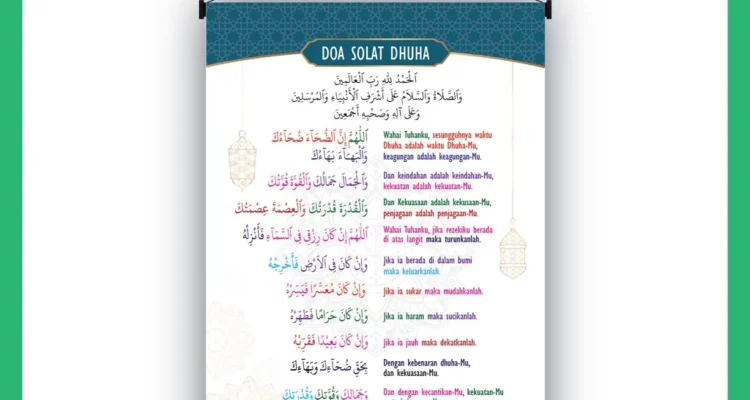 DOA SOLAT DHUHA
اَلْحَمْدُ لِلّٰهِ رَبِّ الْعَالَمِيْنَ
وَالصَّلَاةُ وَالسَّلَامُ عَلَى أَشْرَفِ الْأَنْبِيَاءِ وَالْمُرْسَلِيْنَ
وَعَلَى آلِهِ وَصَحْبِهِ أَجْمَعِيْنَ
اَللّٰهُمَّ إِنَّ الضُّحَآءَ ضُحَاءُكَ
وَالْبَهَآءَ بَهَاءُكَ
Wahai Tuhanku, sesungguhnya waktu
Dhuha adalah waktu Dhuha-Mu,
keagungan adalah keagungan-Mu.
وَالْجَمَالَ جَمَالُكَ وَالْقُوَّةَ قُوَّتُكَ
Dan keindahan adalah keindahan-Mu,
kekuatan adalah kekuatan-Mu.
وَالْقُدْرَةَ قُدْرَتُكَ وَالْعِصْمَةَ عِصْمَتُكَ
Dan Kekuasaan adalah kekusaan-Mu,
penjagaan adalah penjagaan-Mu.
اَللّٰهُمَّ إِنْ كَانَ رِزْقِى فِى السَّمَآءِ فَأَنْزِلْهُ
Wahai Tuhanku, jika rezekiku berada
di atas langit maka turunkanlah.
وَإِنْ كَانَ فِى الْأَرْضِ فَأَخْرِجْهُ
Jika ia berada di dalam bumi
maka keluarkanlah.
وَإِنْ كَانَ مُعَسَّرًا فَيَسِّرْهُ
Jika ia sukar maka mudahkanlah.
وَإِنْ كَانَ حَرَامًا فَطَهِّرْهُ
Jika ia haram maka sucikanlah.
وَإِنْ كَانَ بَعِيْدًا فَقَرِّبْهُ
Jika ia jauh maka dekatkanlah.
بِحَقِّ ضُحَاءِكَ وَبَهَاءِكَ
Dengan kebenaran dhuha-Mu,
dan kekuasaan-Mu.
وَجَمَالِكَ وَقُوَّتِكَ وَقُدْرَتِكَ
Dan dengan kecantikan-Mu, kekuatan-Mu